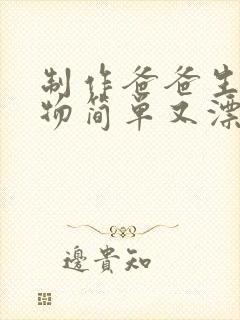 制作爸爸生
物简单又漂
邊貴知